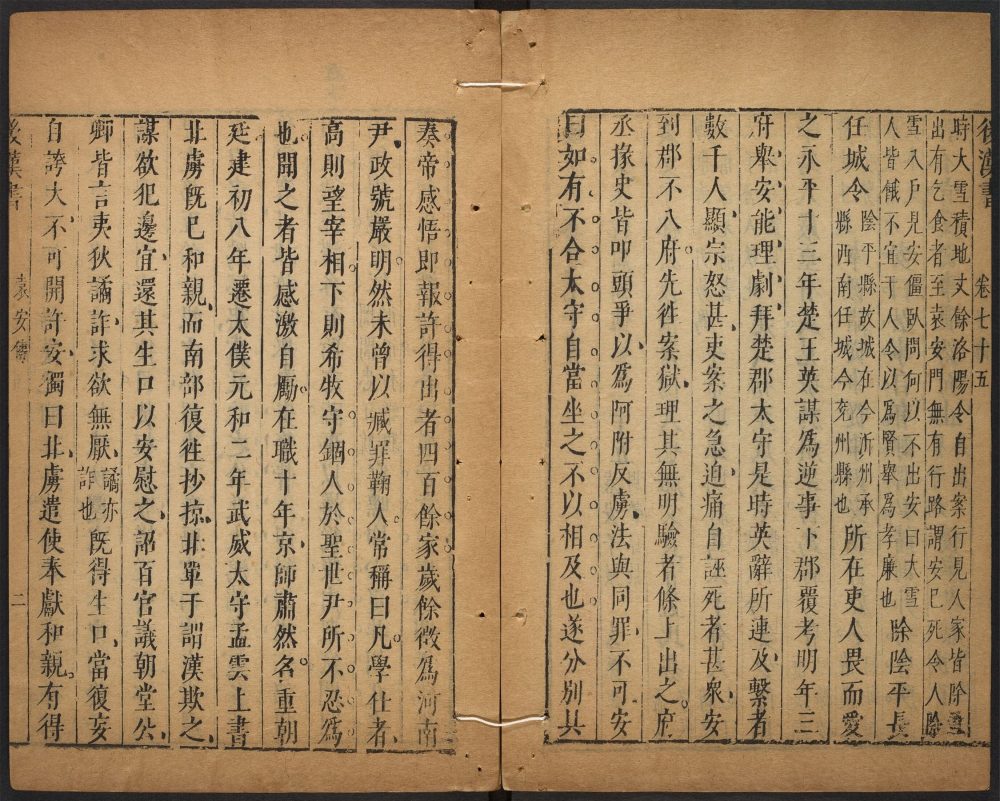 後漢書 卷七十五
時大雪積地丈餘洛陽令自出案行見人家皆除雪
出有乞食者至袁安門無有行路謂安巳死令人除
雪入戶見安僵臥問何以不出安曰大雪
人皆餓不宜干人令以爲賢舉爲孝廉也
除陰平長
任城令
陰平縣故城在今沂州承
縣西南任城今兖州縣也
所在吏人畏而愛
之永平十三年楚王英謀爲逆事下郡覆考明年三
府舉安能理劇拜楚郡太守是時英辭所連及繫者
數千人顯宗怒甚吏案之急迫痛自誣死者甚衆安
到郡不入府先徃案獄理其無明驗者條上出之府
丞掾史皆叩頭爭以爲阿附反虜法與同罪不可安
曰如有不合太守自當坐之不以相及也遂分別具
奏帝感悟即報許得出者四百餘家歲餘徵爲河南
尹政號嚴明然未曾以臧罪鞫人常稱曰凡學仕者
高則望宰相下則希牧守錮人於聖世尹所不忍爲
也聞之者皆感激自勵在職十年京師肅然名重朝
廷建初八年遷太僕元和二年武威太守孟雲上書
北虜旣巳和親而南部復徃抄掠北單于謂漢欺之
謀欲犯邊宜還其生口以安慰之詔百官議朝堂公
卿皆言夷狄譎詐求欲無厭
譎亦
詐也
旣得生口當復妄
自誇大不可開許安獨曰北虜遣使奉獻和親有得
後漢書 袁安傳 二